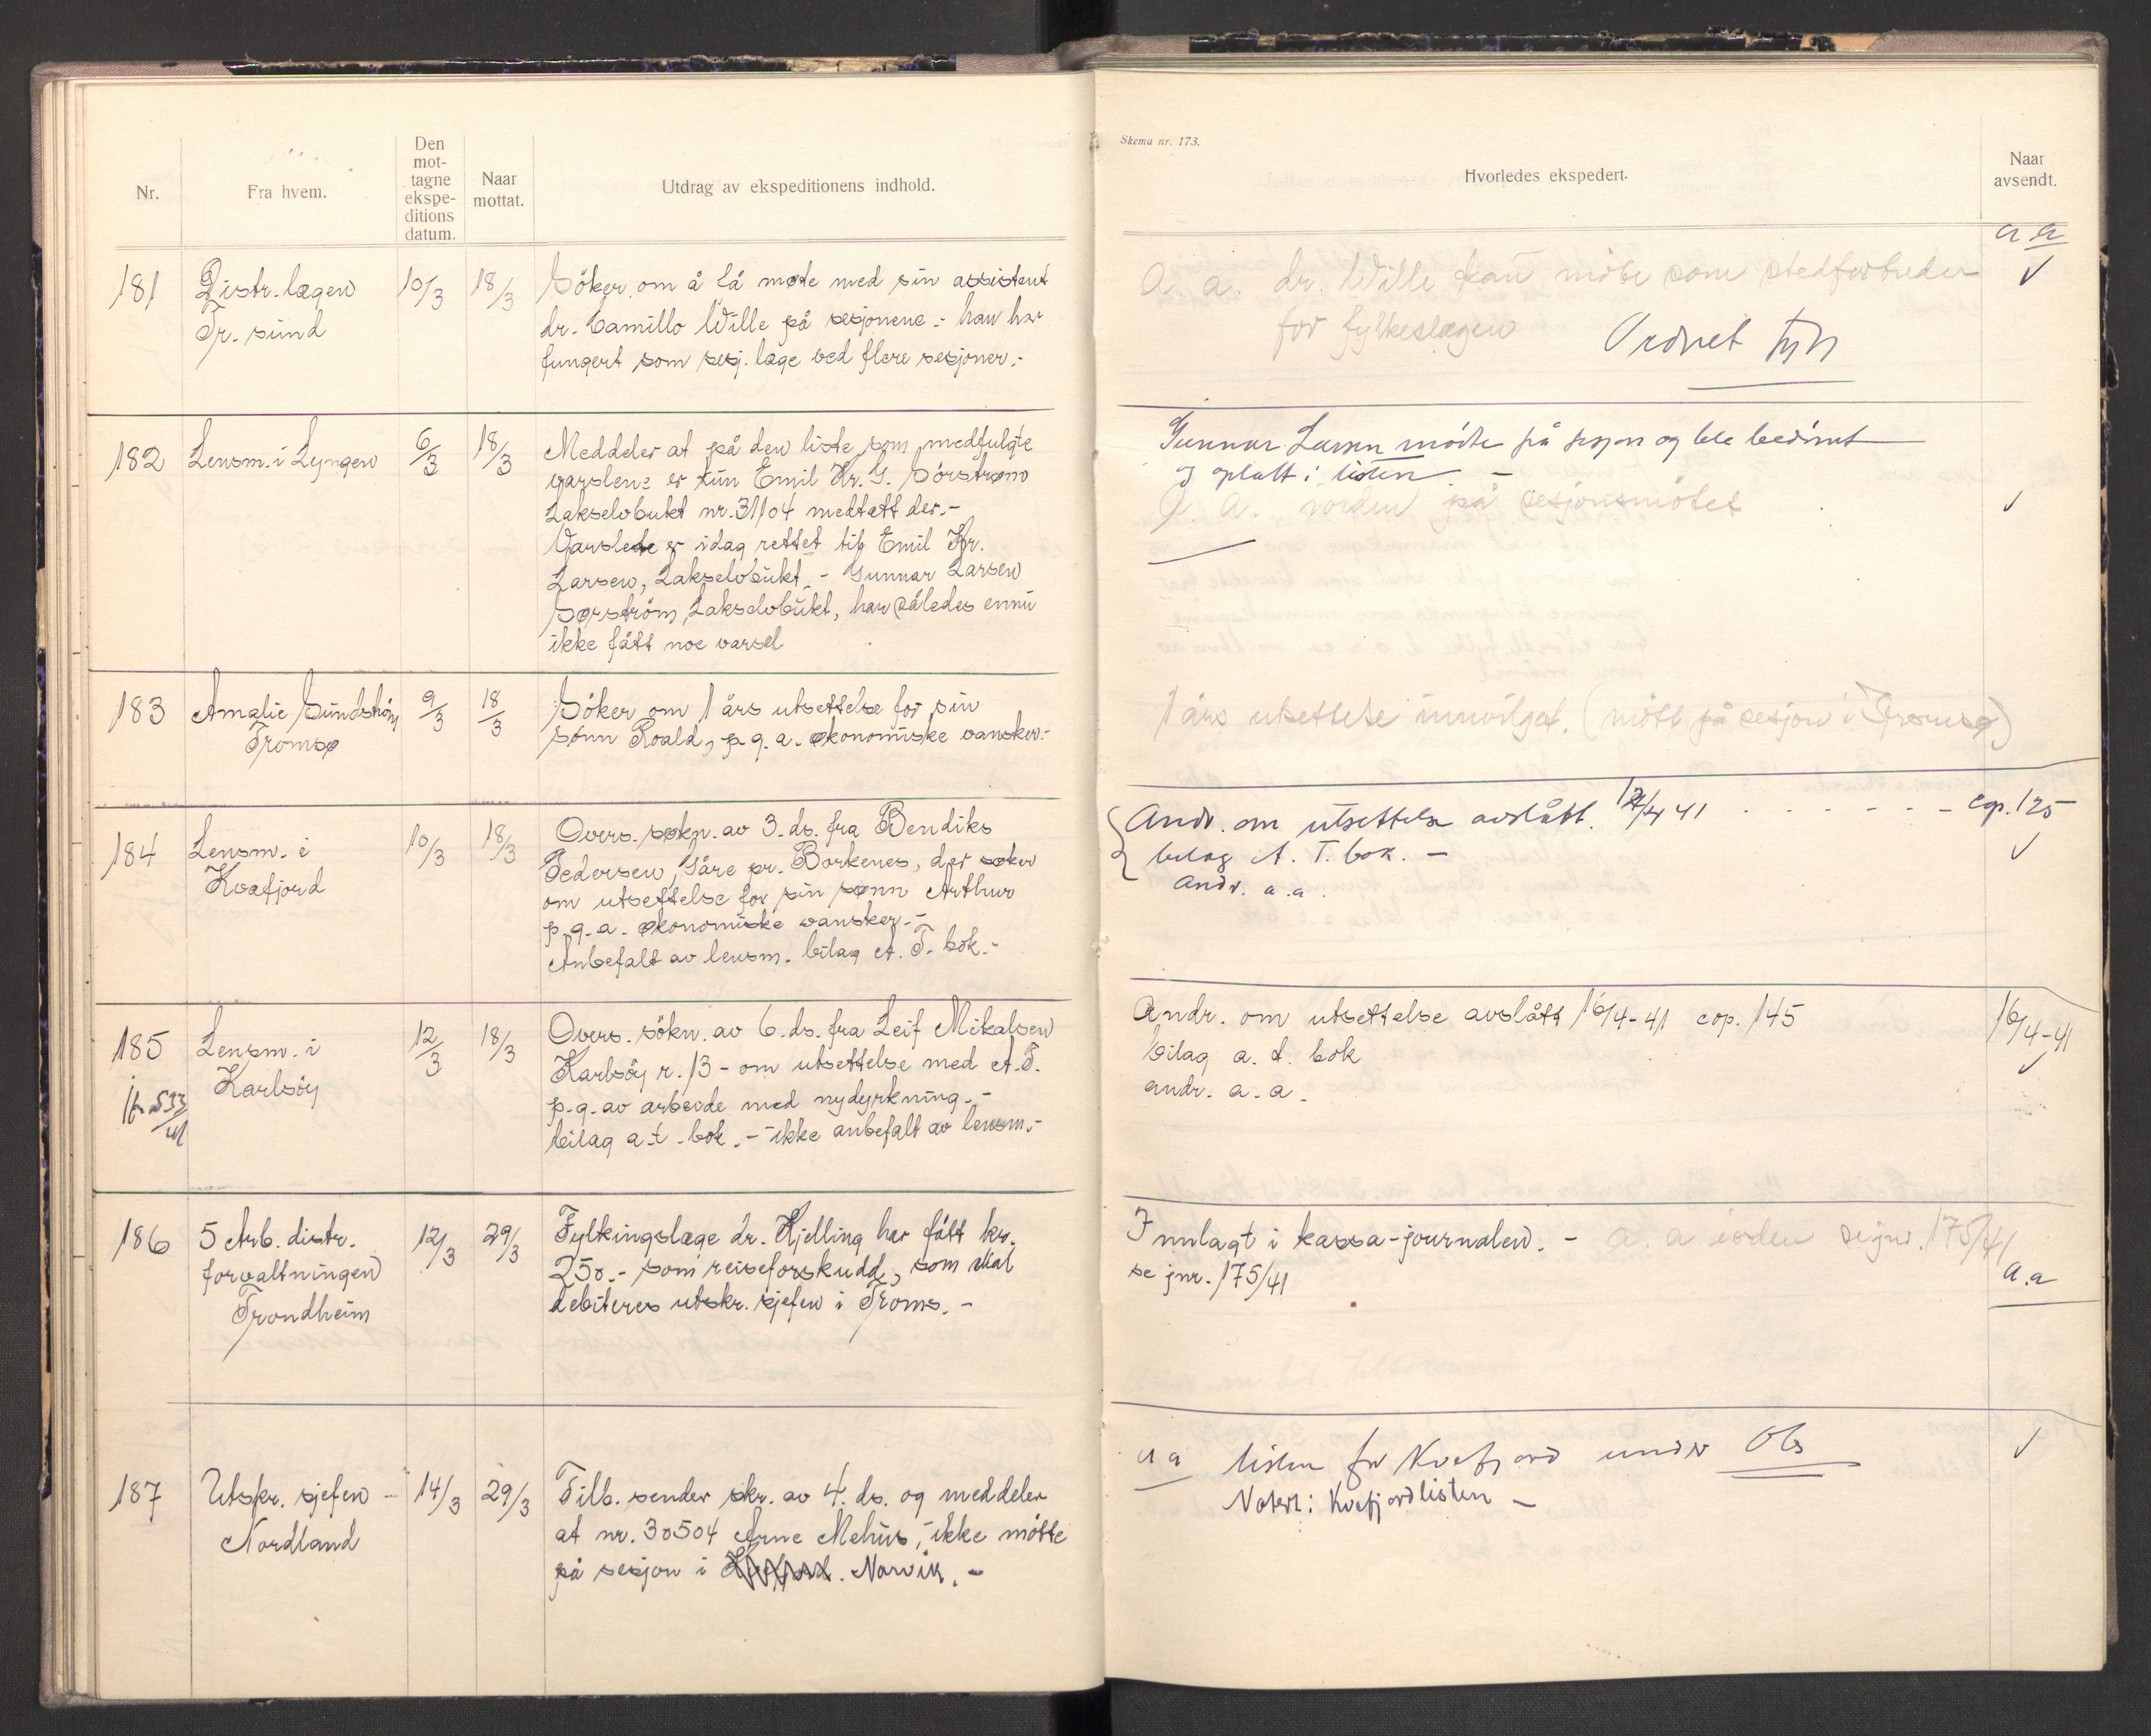 Skema nr. 173.
Nr.
Fra hvem.
Den
mot-
tagne
ekspe-
ditions
datum.
Naar
mottat.
Utdrag av ekspeditionens indhold.
Hvorledes ekspedert.
Naar
avsendt.
181
Distr. lægen
Tr. sund
10/3
18/3
Söker om å få møte med sin assistent
dr. Camillo Wille på sesjonene - han har
fungert som sesj. læge ved flere sesjoner.-
a. a. dr. Wille kan möte som stedfortreder
for fylkeslægen
Ordnet
a a
✓
182
Lensm. i Lyngen
6/3
18/3
Meddeler at på den liste som medfulgte
varslene er kun Emil Kr. G. Sörstrøm
Lakselvbukt nr. 31104 medtatt der.-
Varslene er idag rettet til Emil Kr.
Larsen, Lakselvbukt, - Gunnar Larsen
Sørström, Lakselvbukt, har således ennu
ikke fått noe varsel
Gunnar Larsen mödte på sesjon og ble bedömt
og oplatt i listen. -
a. a. på sesjonsmötet
✓
183
Amalie Sundström
Tromsø
9/3
18/3
Söker om 1 års utsettelse for sin
sønn Roald, p.g.a. økonomiske vansker.-
1 års utsettelse innvilget. (mött på sesjon i Tromsø)
184
Lensm. i
Kvæfjord
10/3
18/3
Overs. søkn. av 3. ds. fra Bendiks
Pedersen, Gåre pr. Borkenes, der søker
om utsettelse for sin sønn Arthur
p.g.a. økonomiske vansker.-
Anbefalt av lensm. bilag A. T. bok.-
Andr. om utsettelse avslått. 12/4 41 - - - - - - cop. 125
bilag A. T. bok. -
andr. a. a.
✓
185
533/41
Lensm. i
Karlsöy
12/3
18/3
Overs. sökn. av 6. ds. fra Leif Mikalsen
Karlsöy r. 13 - om utsettelse med A.T.
p.g.av arbeide med nydyrkning.-
bilag a.t. bok. - ikke anbefalt av lensm.-
Andr. om utsettelse avslått 16/4-41 cop. 145
bilag a. t. bok
andr. a. a.
16/4-41
✓
186
5 Arb. distr.
forvaltningen
Trondheim
12/3
29/3
Fylkingslæge dr. Kjelling har fått kr.
250.- som reiseforskudd, som skal
debiteres utskr. sjefen i Troms. -
Innlagt i kassa-journalen. - a. a
175/41
se jnr. 175/41
a.a
187
Utskr. sjefen -
Nordland
14/3
29/3
Tilb. sender skr. av 4. ds. og meddeler
at nr. 30504 Arne Mehus, ikke mötte
på sesjon i Narvik. -
a a listen for Kvæfjord under Obs
Notert i Kvæfjordlisten -
✓